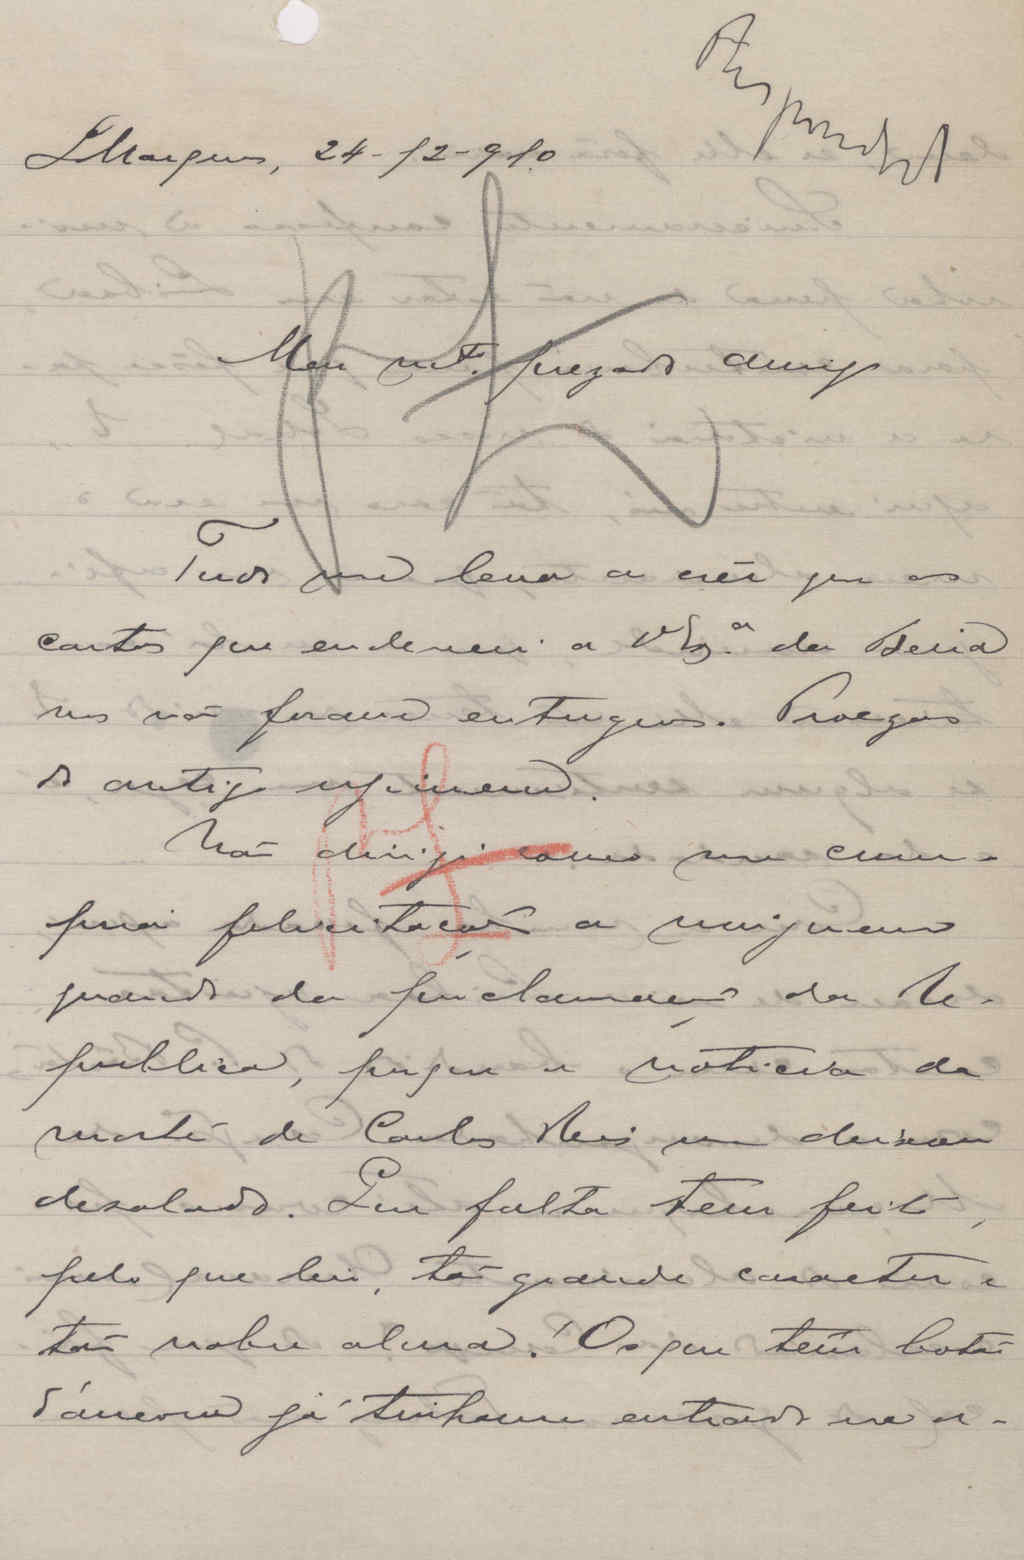 Respondido
LMarques, 24-12-910.
Meu mt. prezado amigo
Tudo me leva a crêr que as
cartas que enderecei a V. Exª. da Beira
nos não foram entregues. Proezas
do antigo regimen.
Não dirigi como me cum-
pria felicitação a ninguem
quando da proclamação da Re-
publica, porque a noticia da
morte de Carlos Reis me deixou
desolado. Que falta tem feito,
pelo que leio, tão grande caracter e
tão nobre alma! Os que tem
já tinham entrado na o-